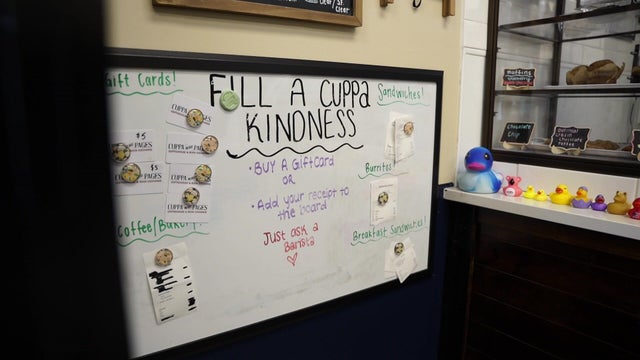 Clear/SF
Clear
FILL A CUPPA
KINDNESS
Gift Cards!
$5
CUPPA and PAGES
CUPPA and PAGES
PAGES
$5
CUPPA and PAGES
CUPPA and PAGES
Coffee/Bakery
• BUY A Giftcard
OR
• Add your receipt to
the board
Just ask a
Barista
Sandwiches!
Burritos
Breakfast Sandwiches!
muffins
Chocolate
Chip
oatmeal
cream
chocolate
toffee